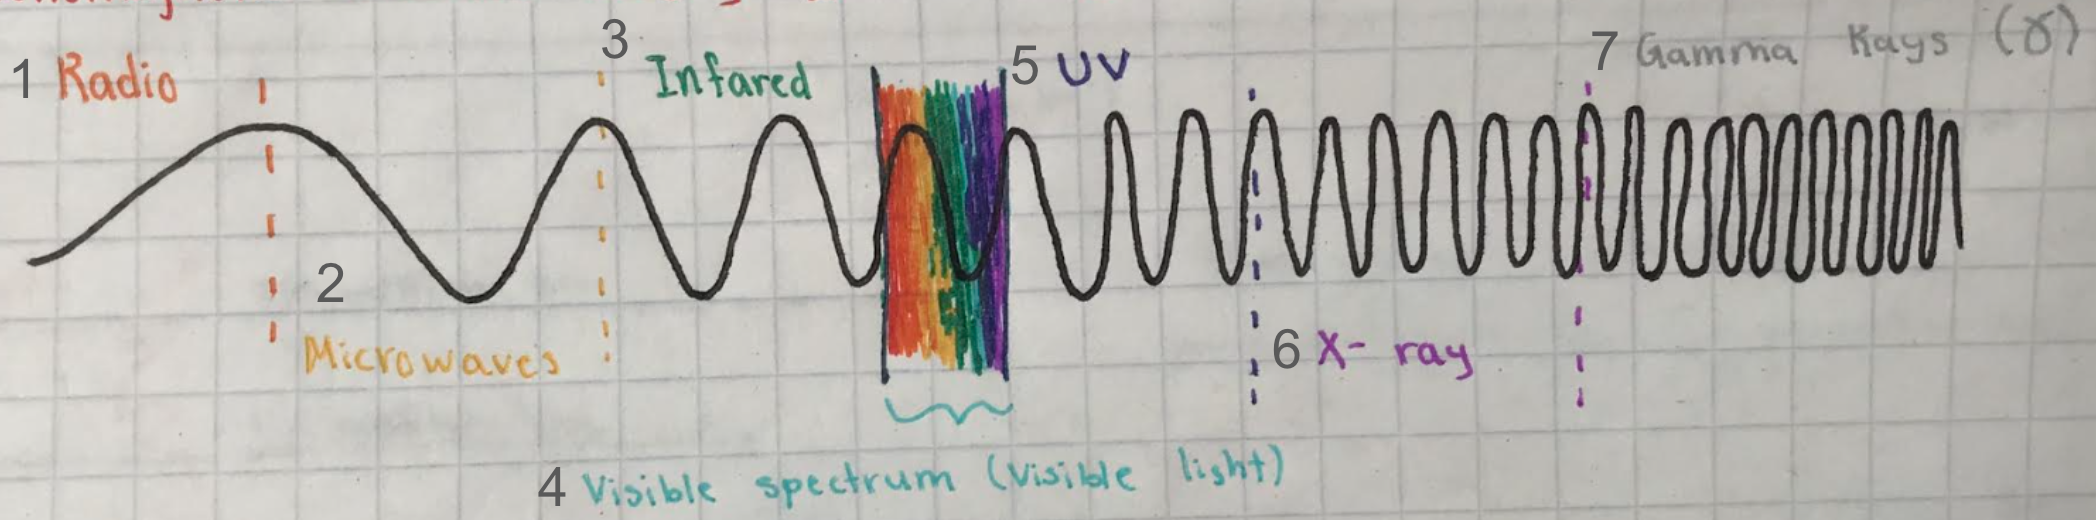 3
1 Radio
Infared
5 UV
7 Gamma Rays (γ)
2
Microwaves
6 X-ray
4 Visible spectrum (Visible light)